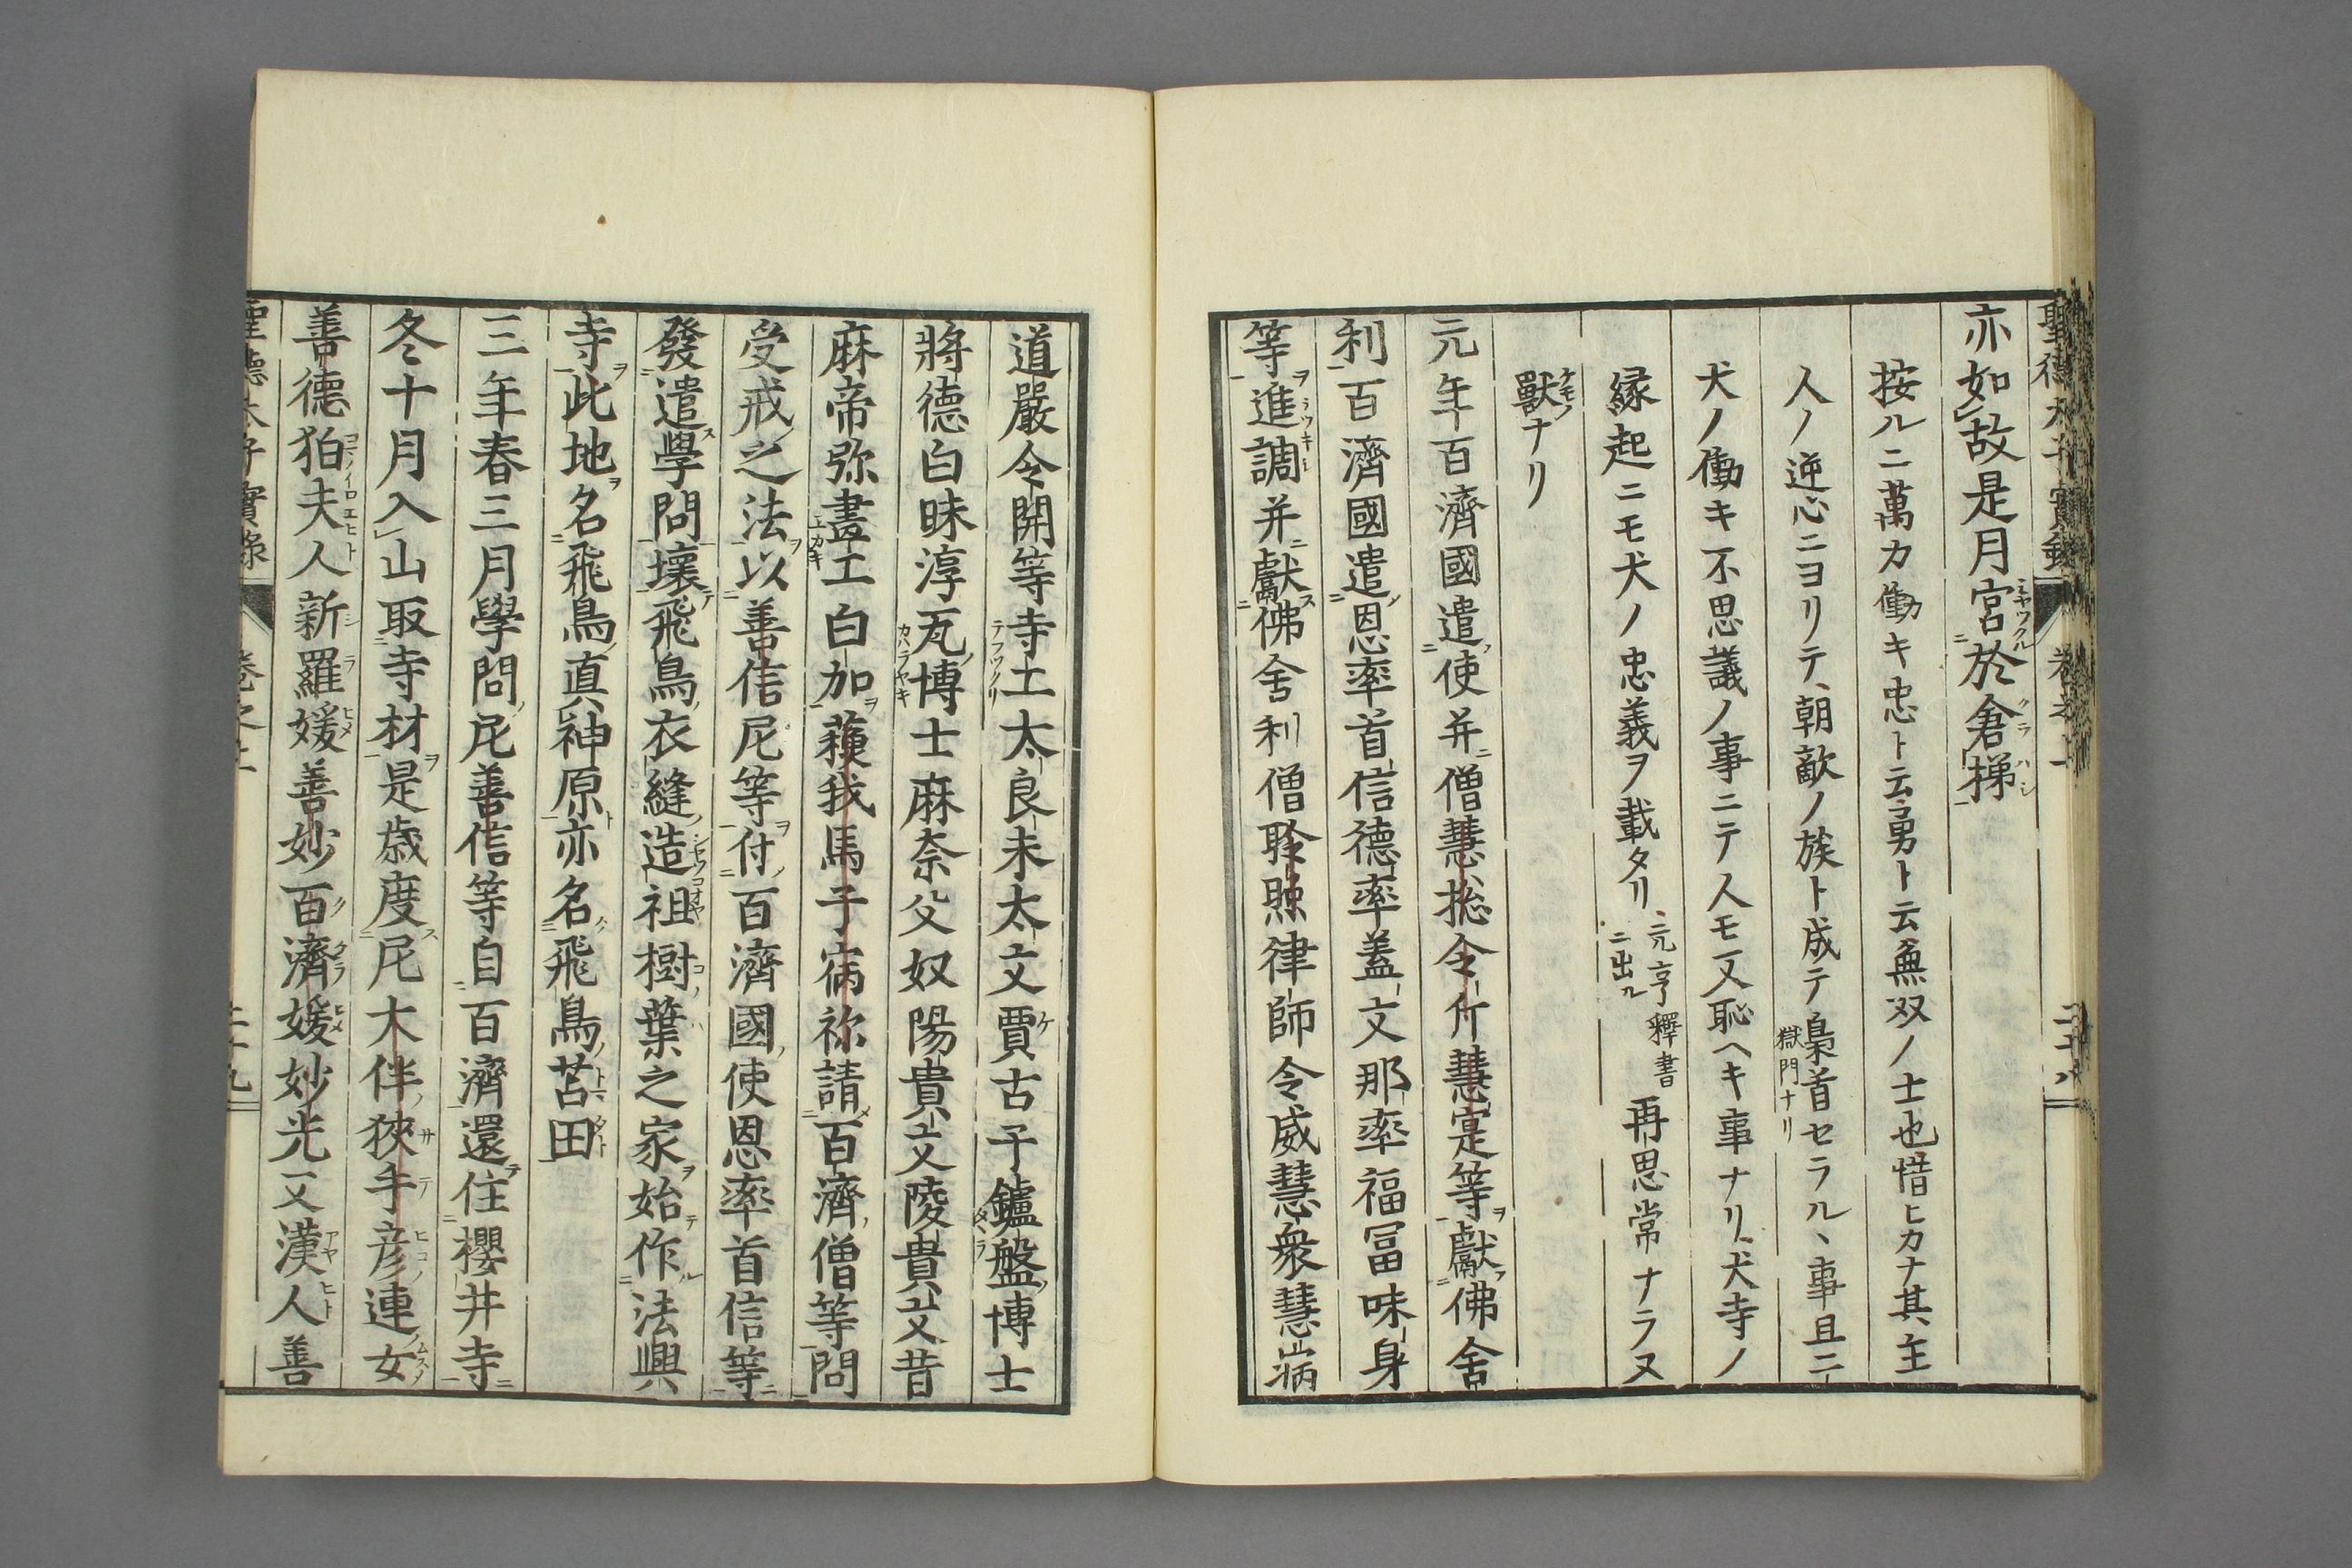 亦如故是月宮於倉梯
按ルニ萬カ働キ忠ト云勇ト云無双ノ士也惜ヒカナ其主
人ノ逆心ニヨリテ朝敵ノ族ト成テ梟首セラル、事且ニ
獄門ナリ
犬ノ働キ不思議ノ事ニテ人モ又恥ヘキ事ナリ犬寺ノ
縁起ニモ犬ノ忠義ヲ載タリ元亨釋書ニ出ル再思常ナラヌ
獸ナリ
元年百濟國遣使并僧慧揔令斤慧寔等獻佛舍
利百濟國遣恩率首信德率蓋文那率福冨味身
等進調并獻佛舍利僧聆照律師令威慧衆慧
道嚴令開等寺土太良未太文賈古子鑪盤博士
將德白昧淳瓦博士麻奈父奴陽貴文陵貴文昔
麻帝弥畫工白加蘓我馬子宿祢請百濟僧等問
受戒之法以善信尼等付百濟國使恩率首信等
發遣學問壞飛鳥衣縫造祖樹葉之家始作法興
寺此地名飛鳥真神原亦名飛鳥苫田
三年春三月學問尼善信等自百濟還住櫻井寺
冬十月入山取寺材是歳度尼大伴狹手彦連女
善德狛夫人新羅媛善妙百濟媛妙光又漢人善
聖德太子實錄